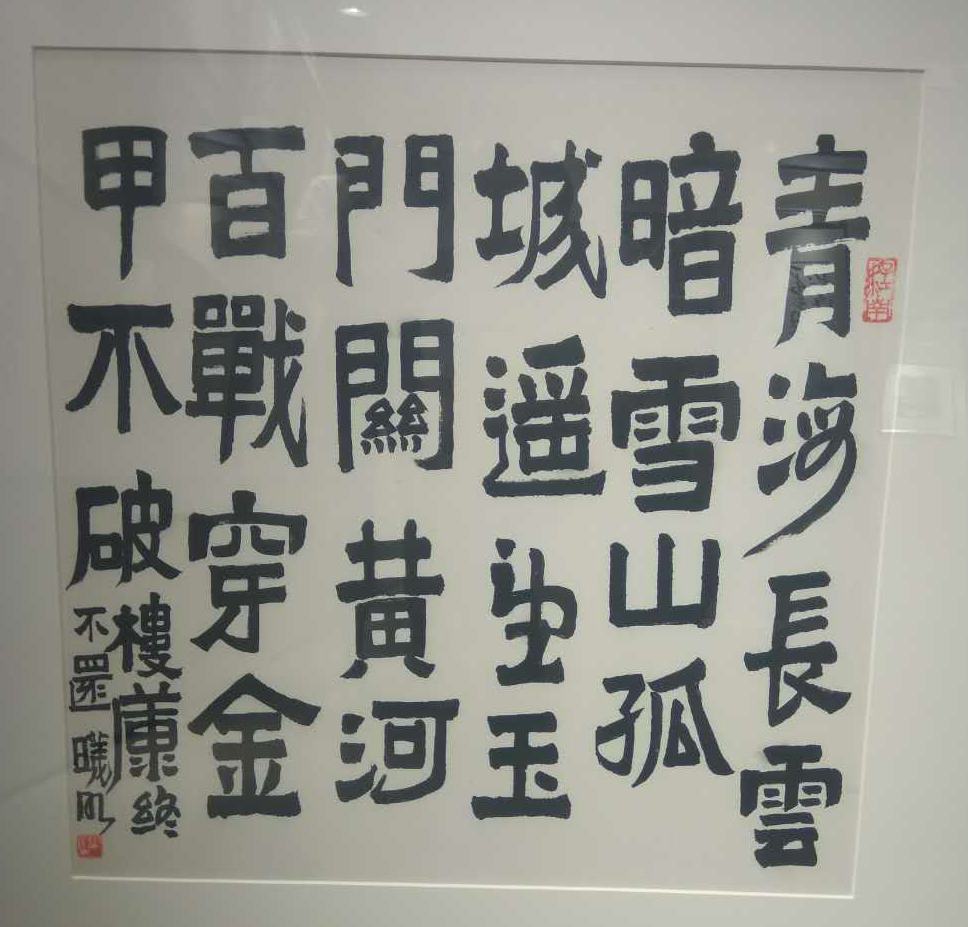 青海長雲
暗雪山孤
城遥望玉
門關黄河
百戰穿金
甲不破
樓蘭終
不還 曦